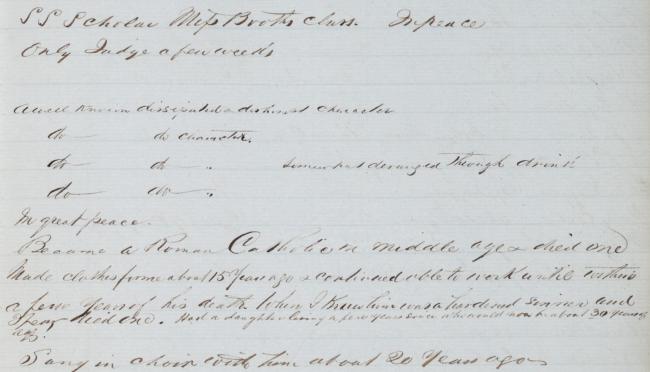 S S Scholar Miss Booth's class. In peace
Only Judge a few weeks
A well known dissipated & dishonest character
do do character.
do do " Somewhat deranged through drink
do do "
In great peace.
Became a Roman Catholic in middle age & died one
Made clothes for me about 15 Years ago & continued able to work until within
a few Years of his death. When I Knew him was a hardened sinner and
died one. Had a daughter living a few Years since who would now be about 30 Years of
age.
Sang in choir with him about 20 Years ago